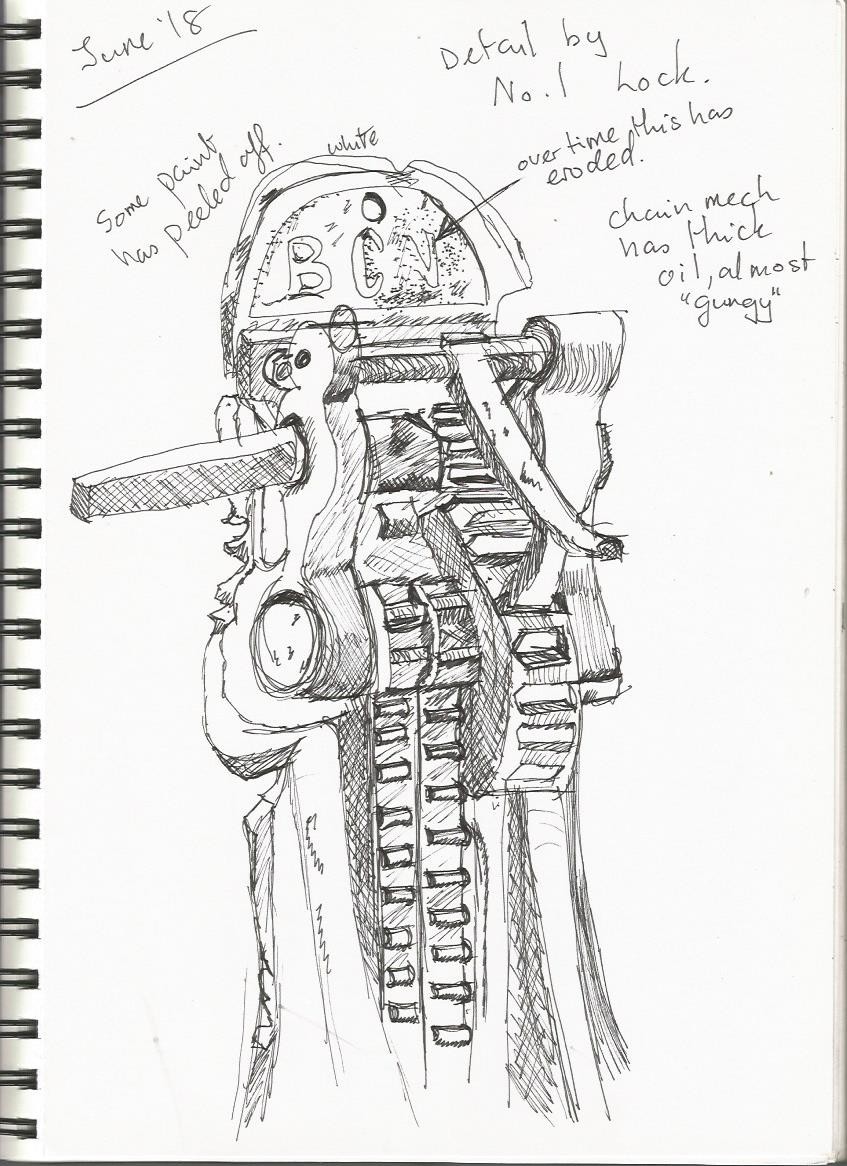 June '18
Detail by
No.1 Lock.
Some paint
has peeled off.
white
over time this has
eroded.
chain mech
has thick
oil, almost
"gungy"
BCN